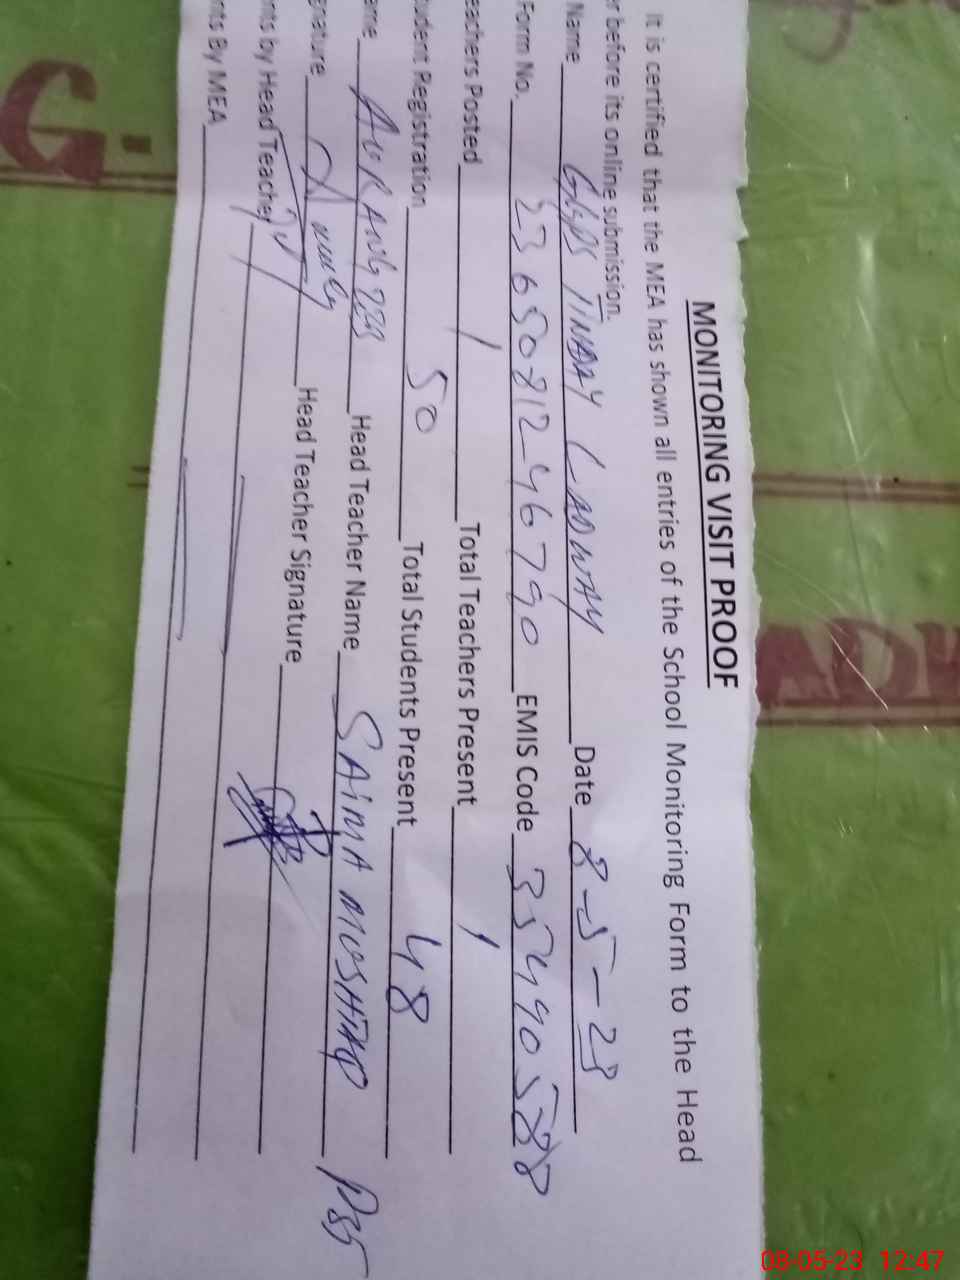 MONITORING VISIT PROOF
It is certified that the MEA has shown all entries of the School Monitoring Form to the Head
r before its online submission.
Name GGPS TINDAY LADWAY Date 8-5-23
Form No. 23650812-46790 EMIS Code 35490588
eachers Posted 1 Total Teachers Present 1
tudent Registration 50 Total Students Present 48
ame AURANGZEB Head Teacher Name SAIMA MUSHTAQ PST
gnature Head Teacher Signature
nts by Head Teacher
nts By MEA
G.
08-05-23 12:47